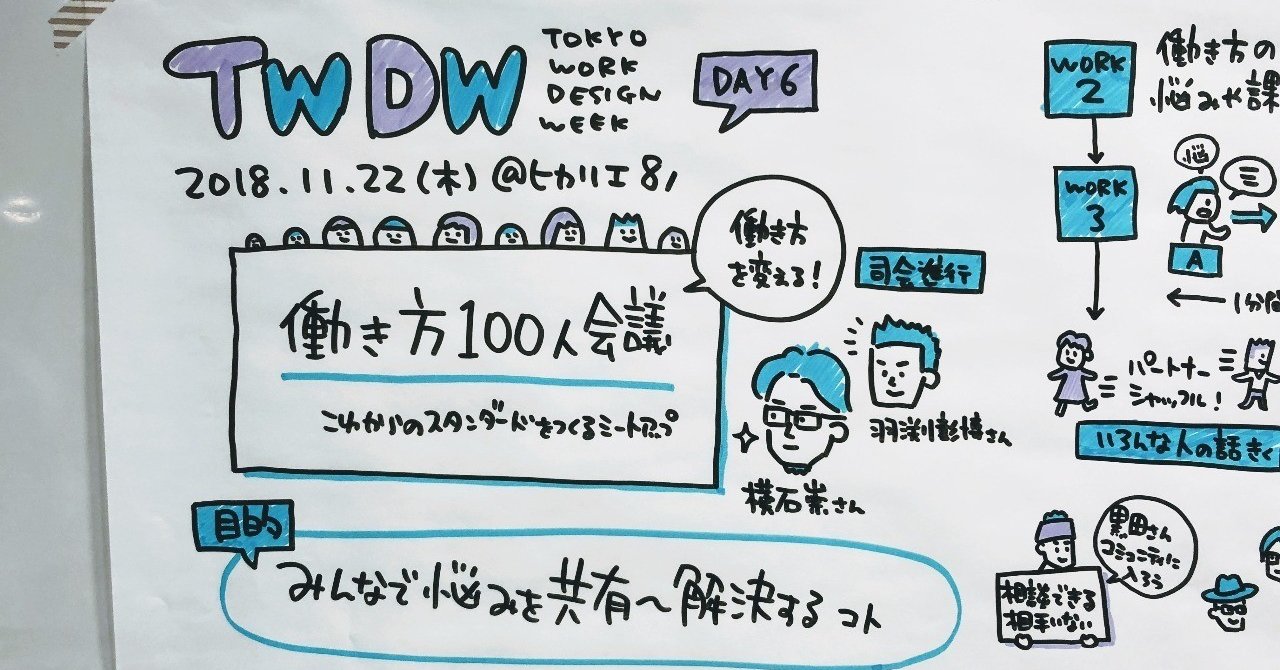 TWDW
TOKYO
WORK
DESIGN
WEEK
DAY6
2018.11.22(木)@ヒカリエ8/
働き方
を変える!
働き方100人会議
これからのスタンダードをつくるミートアップ
司会進行
羽渕彰博さん
横石崇さん
目的
みんなで悩みを共有〜解決するコト
WORK
2
働き方の
悩みや課
WORK
3
悩
A
1分間
パートナー
シャッフル!
いろんな人の話きく
黒田さん
コミュニティに
入ろう
相談できる
相手いない